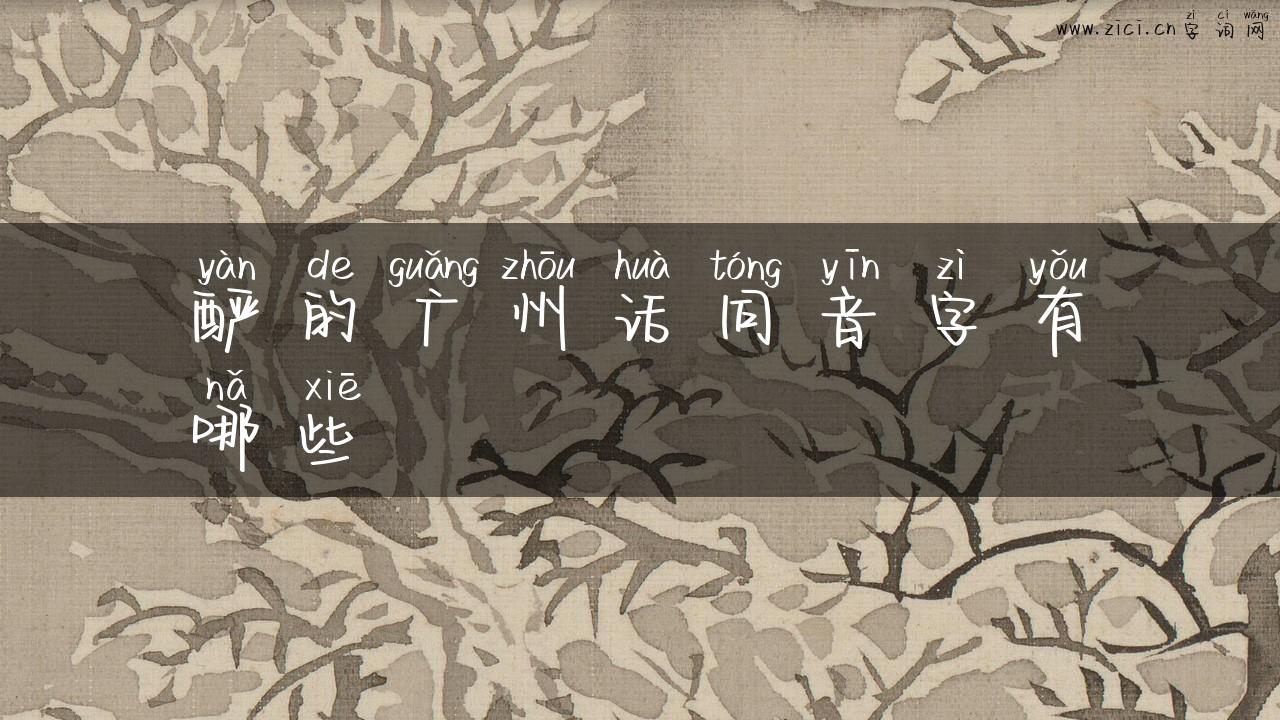 zì cí wǎng
www.zici.cn字词网
yàn de guǎng zhōu huà tóng yīn zì yǒu
酽的广州话同音字有
nǎ xiē
哪些